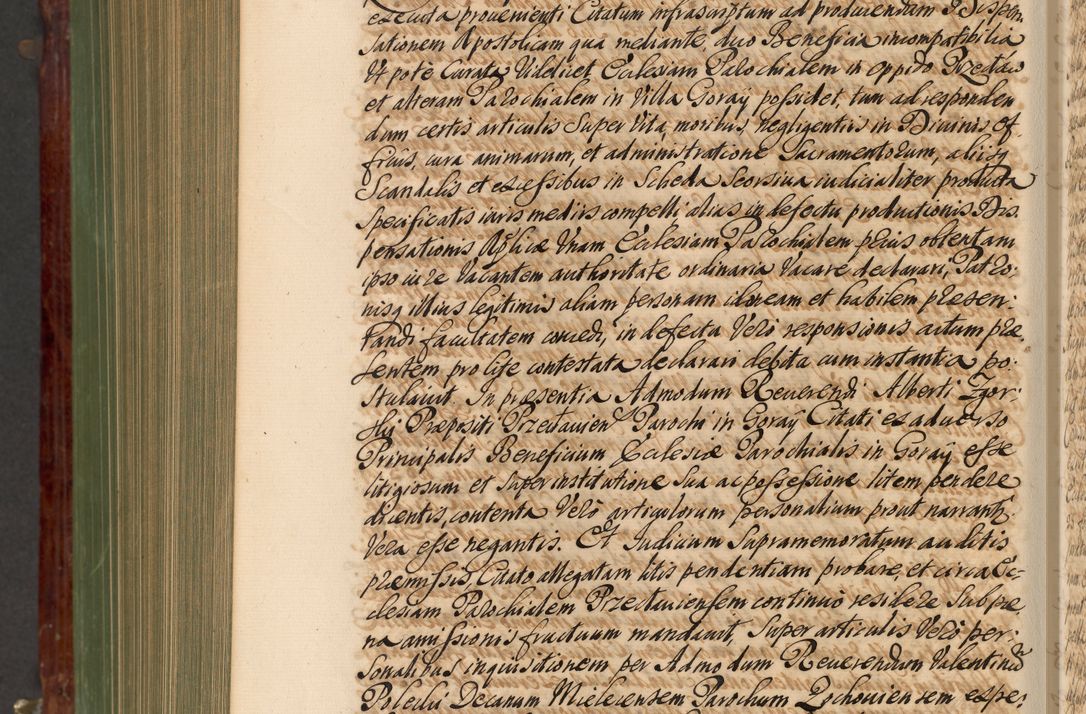 executa provenienti Citatum infrascriptum ad producendam Dispen
sationem Apostolicam qua mediante duo Beneficia incompatibilia
Vt pote Curata Videlicet Eclesiam Parochialem in oppido Przeclaw
et alteram Parochialem in Villa Goraÿ possidet, tum ad responden
dum certis articulis Super Vita, moribus, negligentiis in Divinis of
ficiis, cura animarum, et administratione Sacramentorum, aliisq
Scandalis et excessibus in Scheda Seorsiva iudicialiter producta
Specificatis iuris mediis compelli alias in defectu productionis Dis
pensationis Aplicæ Vnam Eclesiam Parochialem prius obtentam
ipso iure Vacantem authoritate ordinaria Vacare declarari, Patro
nisq illius legitimis aliam personam idoneam et habilem presen
tandi facultatem concedi, in defectu Verò responsionis actum præ
sentem pro lite contestata declarari debita cum instantia po
stulavit. In præsentia Admodum Reuerendi Alberti Zor
skij Præpositi Przeclavien Parochi in Goraÿ Citati ex adverso
Principalis Beneficium Eclesiæ Parochialis in Goraÿ esse
litigiosum et Super institutione Sua ac possessione litem pendere
dicentis, contenta Verò articulorum personalium prout narrantr
Vera esse negantis. Et Iudicium Supramemoratum auditis
præmissis Citato allegatam litis pendentiam probare, et circa Ec
clesiam Parochialem Przeclaviensem continuò residere Sub pæ
na amissionis fructuum mandavit, Super articulis Verò per
sonalibus inquisitionem per Admodum Reuerendum Valentinū
Decanum Mielecensem Parochum Zochouiensem expe